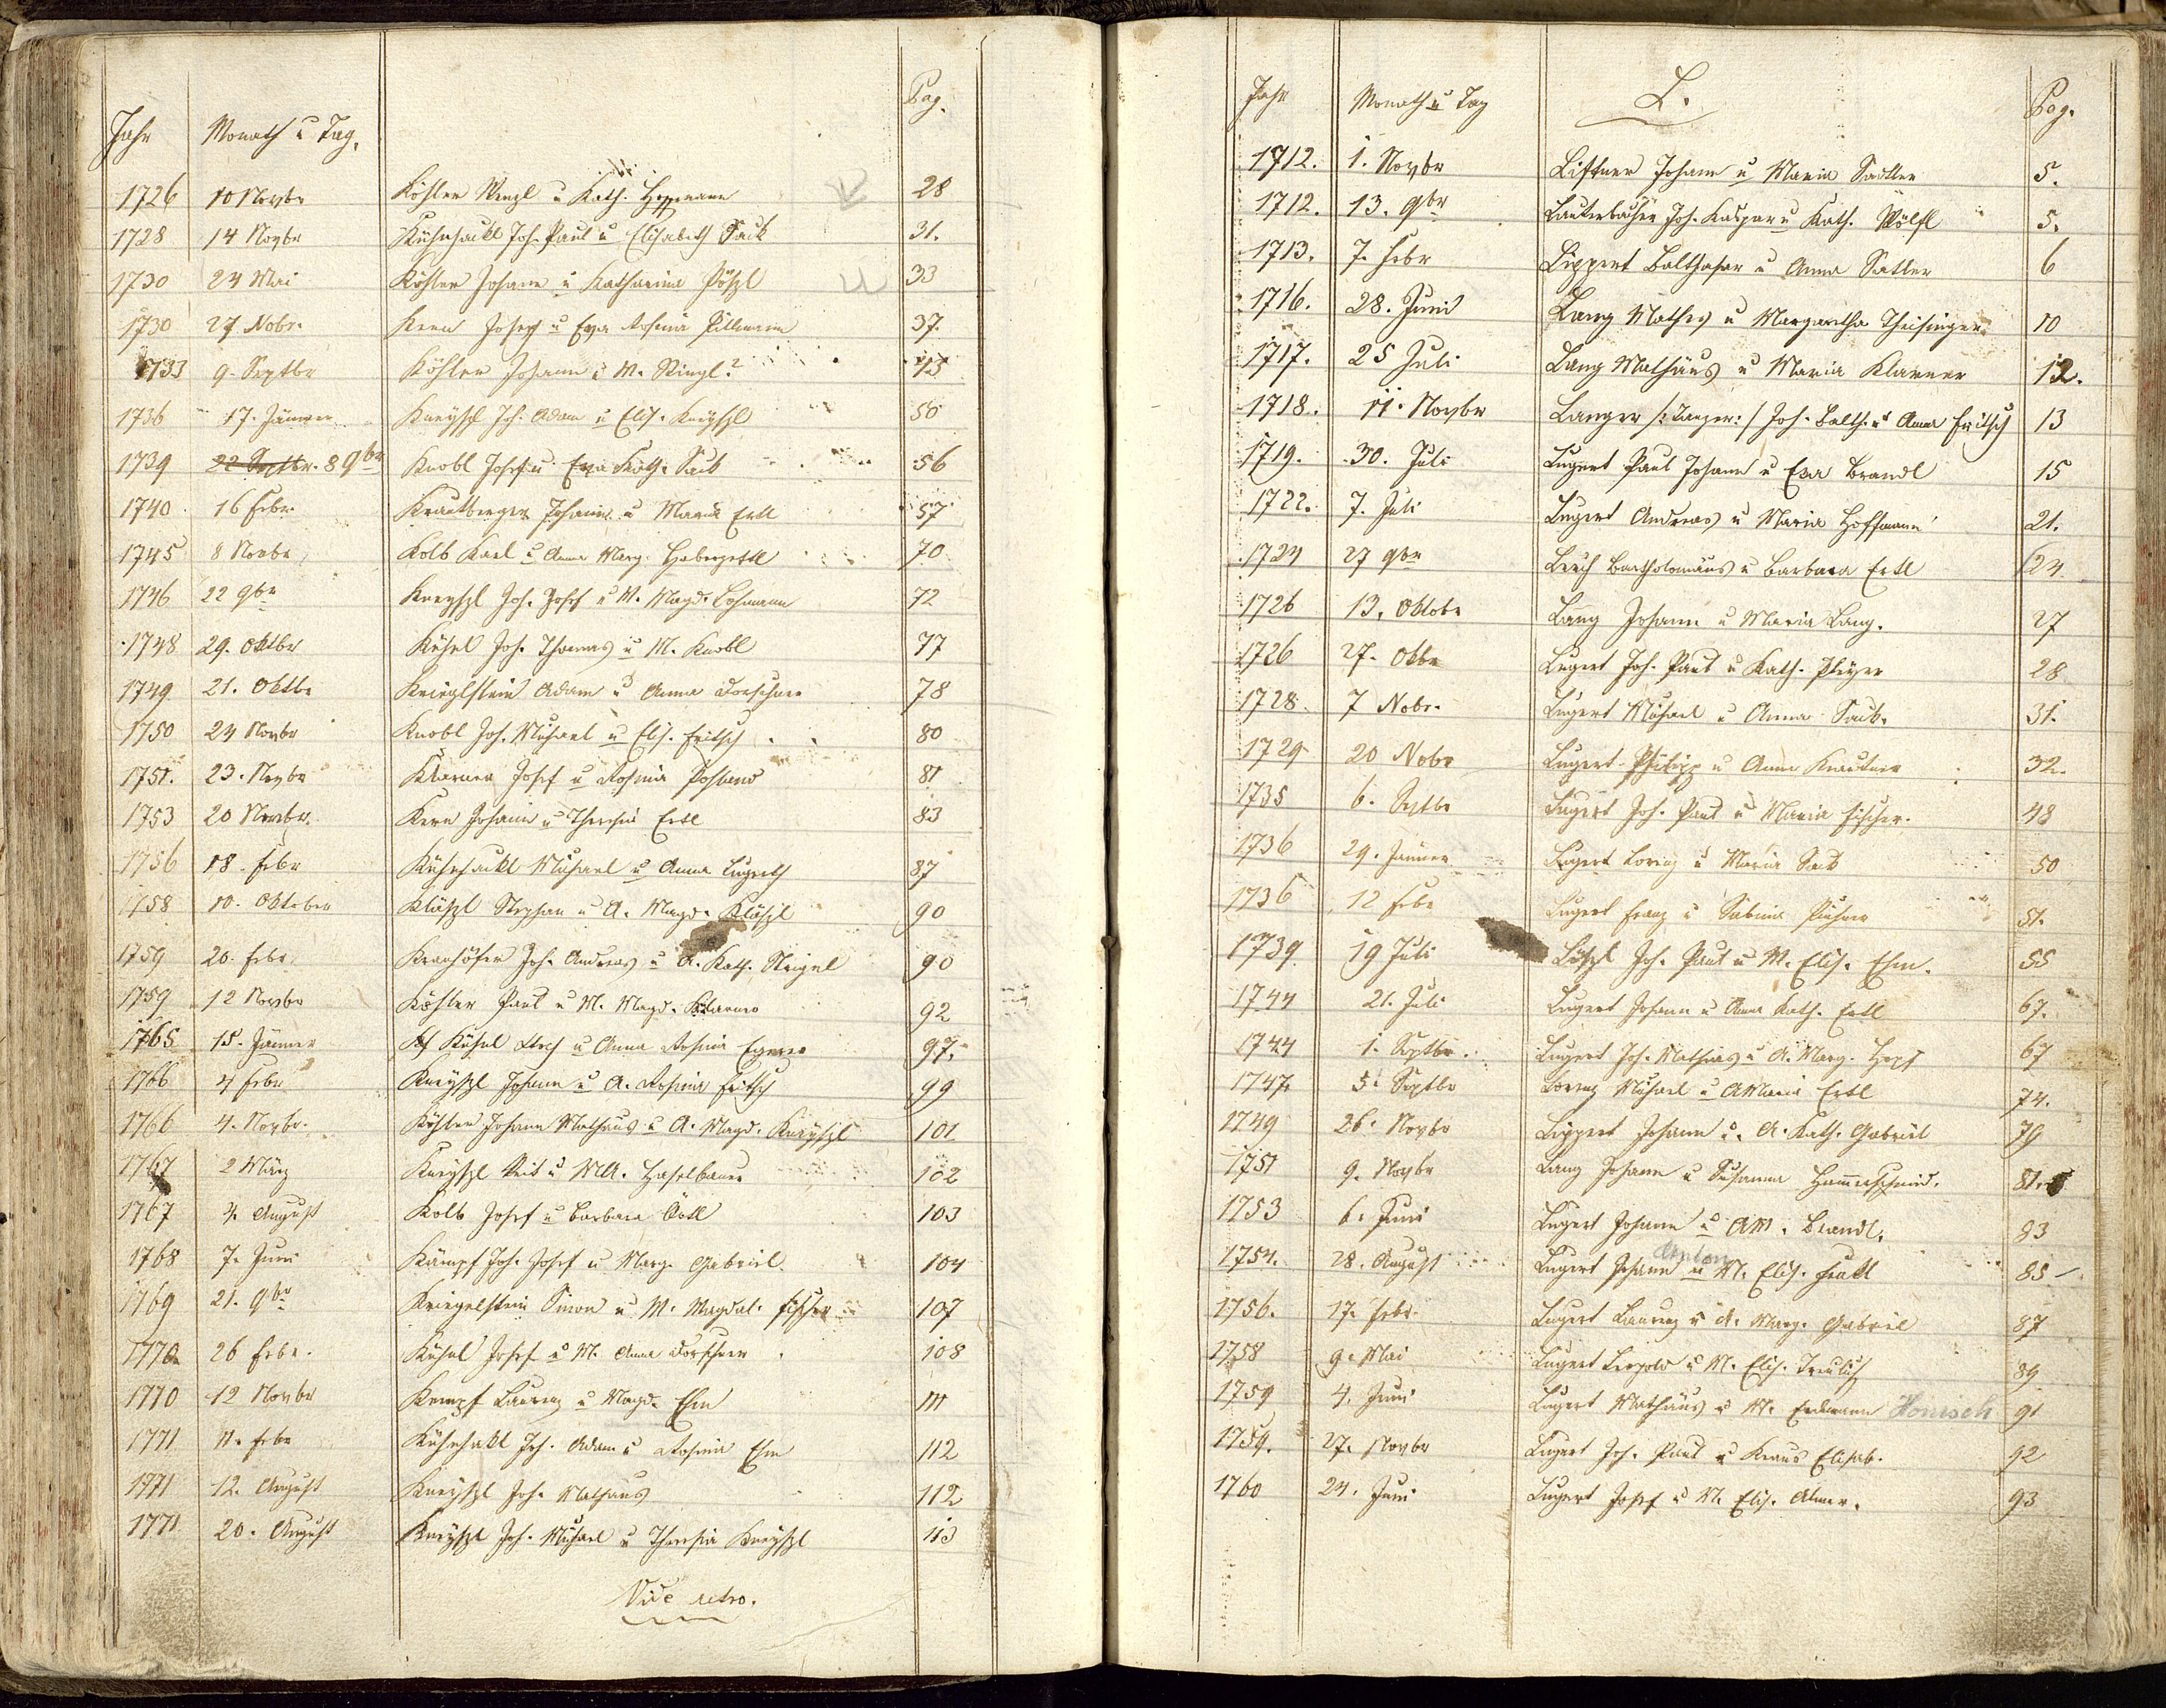 Jahr Monath u Tag. Pag.
1726 10 Novbr Köhler Wenzl u Kath. Hoffmann 28
1728 14 Novbr Kühnhackl Joh. Paul u Elisabeth Sack 31.
1730 24 Mai Köhler Johann u Katharina Pößl 33
1730 27 Nobr. Kern Joseph u Eva Rosina Pillmann 37.
1733 9. Septbr Köhler Johann u M. Stingl? 45
1736 17. Jänner Kneyßl Joh. Adam u Elis. Kneyßl 50
1739 22 Septbr. 8 9br Knobl Josef u Eva Kath. Sack 56
1740 16 Febr. Krautberger Johann u Maria Ertl 57
1745 8 Novbr Kolb Karl u Anna Marg. Haberzettl 70
1746 22 9br Kneyßl Joh. Josef u M. Magd. Lohmann 72
1748 29. Oktbr Kühnl Joh. Thomas u M. Knobl 77
1749 21. Oktbr Krieglstein Adam u Anna Dorschner 78
1750 24 Novbr Knobl Joh. Michael u Elis. Fritsch 80
1751. 23. Novbr Klarner Josef u Rosina 81
1753 20 Novbr. Kern Johann u Theresia Ertl 83
1756 18. Febr Kühnhackl Michael u Anna Lugerth 87
1758 10. Oktober Klößzl Stephan u A. Magd. Klößzl 90
1759 20. Febr. Kronhöfer Joh. Andreas u A. Kath. Steigel 90
1759 12 Novbr Köhler Paul u M. Magd. Klarner 92
1765 15. Jänner Kühnl u Anna Rosina Egerer 97.
1766 4 Febr Kneyßl Johann u A. Rosina Fritsch 99
1766 4. Novbr. Köhler Johann Mathäus u A. Magd. Kneyßl 101
1767 2 März Kneyßl Veit u MA. Haselbauer 102
1767 4. August Kolb Josef u Barbara 103
1768 7. Juni Kämpf Joh. Josef u Marg. Gabriel 104
1769 21. 9br Kriegelstein Simon u M. Magdal. Fischer 107
1770 26 Febr. Kühnl Josef u M. Anna Dorschner 108
1770 12 Novbr Kempf Laurenz u Magd. Ehm 111
1771 11. Febr Kühnhakl Joh. Adam u Rosina Ehm 112
1771 12. August Kneyßl Joh. Mathäus 112
1771 20. August Kneyßl Joh. Michael u Theresia Kneyßl 113
Vide retro.
Jahr Monath u Tag L. Pag.
1712. 1. Novbr Liftner Johann u Maria Sattler 5.
1712. 13. 9br Lauterbacher Joh. Kaspar u Kath. Wölfl 5.
1713. 7. Febr Lippert Balthasar u Anna Sattler 6
1716. 28. Juni Lang Mathes u Margaretha Theisinger 10
1717. 25 Juli Lang Mathäus u Maria Klarner 12.
1718. 11. Novbr Langer /: Zanger :/ Joh. Balth. u Anna Fritsch 13
1719. 30. Juli Lugert Paul Johann u Eva Brandl 15
1722. 7. Juli Lugert Andreas u Maria Hoffmann 21.
1724 27 9br Bartholomäus u Barbara Ertl 24
1726 13. Oktobr Lang Johann u Maria Lang. 27
1726 27. Oktbr Lugert Joh. Paul u Kath. Pleyer 28
1728. 7 Nobr. Lugert Michael u Anna Sack. 31.
1729 20 Nobr Lugert Philipp u Anna Krautner 32.
1735 6. Septbr Lugert Joh. Paul u Maria Fischer. 48
1736 29. Jänner Lugert Lorenz u Maria Sack 50
1736 12 Febr Lugert Franz u Sabina 51.
1739. 19 Juli Lößzl Joh. Paul u M. Elis. Ehm. 55
1744 21. Juli Lugert Johann u Anna Kath. Ertl 67.
1744 1. Septbr. Lugert Joh. Mathias u A. Marg. Hopf 67
1747. 5. Septbr Lorenz Michael u AMaria Ertl 74.
1749 26. Novbr Lippert Johann u. A. Kath. Gabriel 79
1751 9. Novbr Lang Johann u Susanna Hammerschmid. 81.
1753 6. Juni Lugert Johann u AM. Brandl. 83
1754. 28. August Lugert Johann Anton u M. Elis. Hackl 85
1756. 17. Febr. Lugert Laurenz u A. Marg. Gabriel 87
1758 9. Mai Lugert Leopold u M. Elis. Treulich 89
1759 4. Juni Lugert Mathäus u M. Erdmann Honisch 91
1759. 27. Novbr Lugert Joh. Paul u Kraus Elisab. 92
1760 24. Juni Lugert Josef u M. Elis. Almer. 93